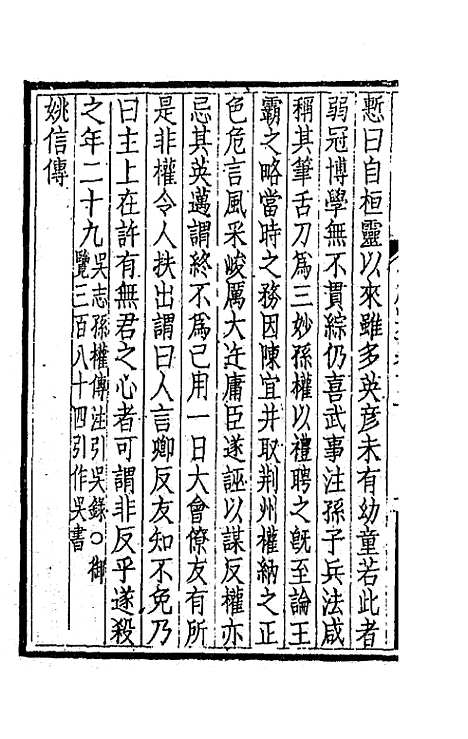 慙曰自桓靈以來雖多英彥未有幼童若此者
弱冠博學無不貫綜仍喜武事注孫子兵法咸
稱其筆舌刀爲三妙孫權以禮聘之旣至論王
霸之略當時之務因陳宜并取荆州權納之正
色危言風采峻厲大迕庸臣遂誣以謀反權亦
忌其英邁謂終不爲己用一日大會僚友有所
是非權令人扶出謂曰人言卿反友知不免乃
曰主上在許有無君之心者可謂非反乎遂殺
之年二十九吳志孫權傳注引吳錄○御
覽三百八十四引作吳書
姚信傳